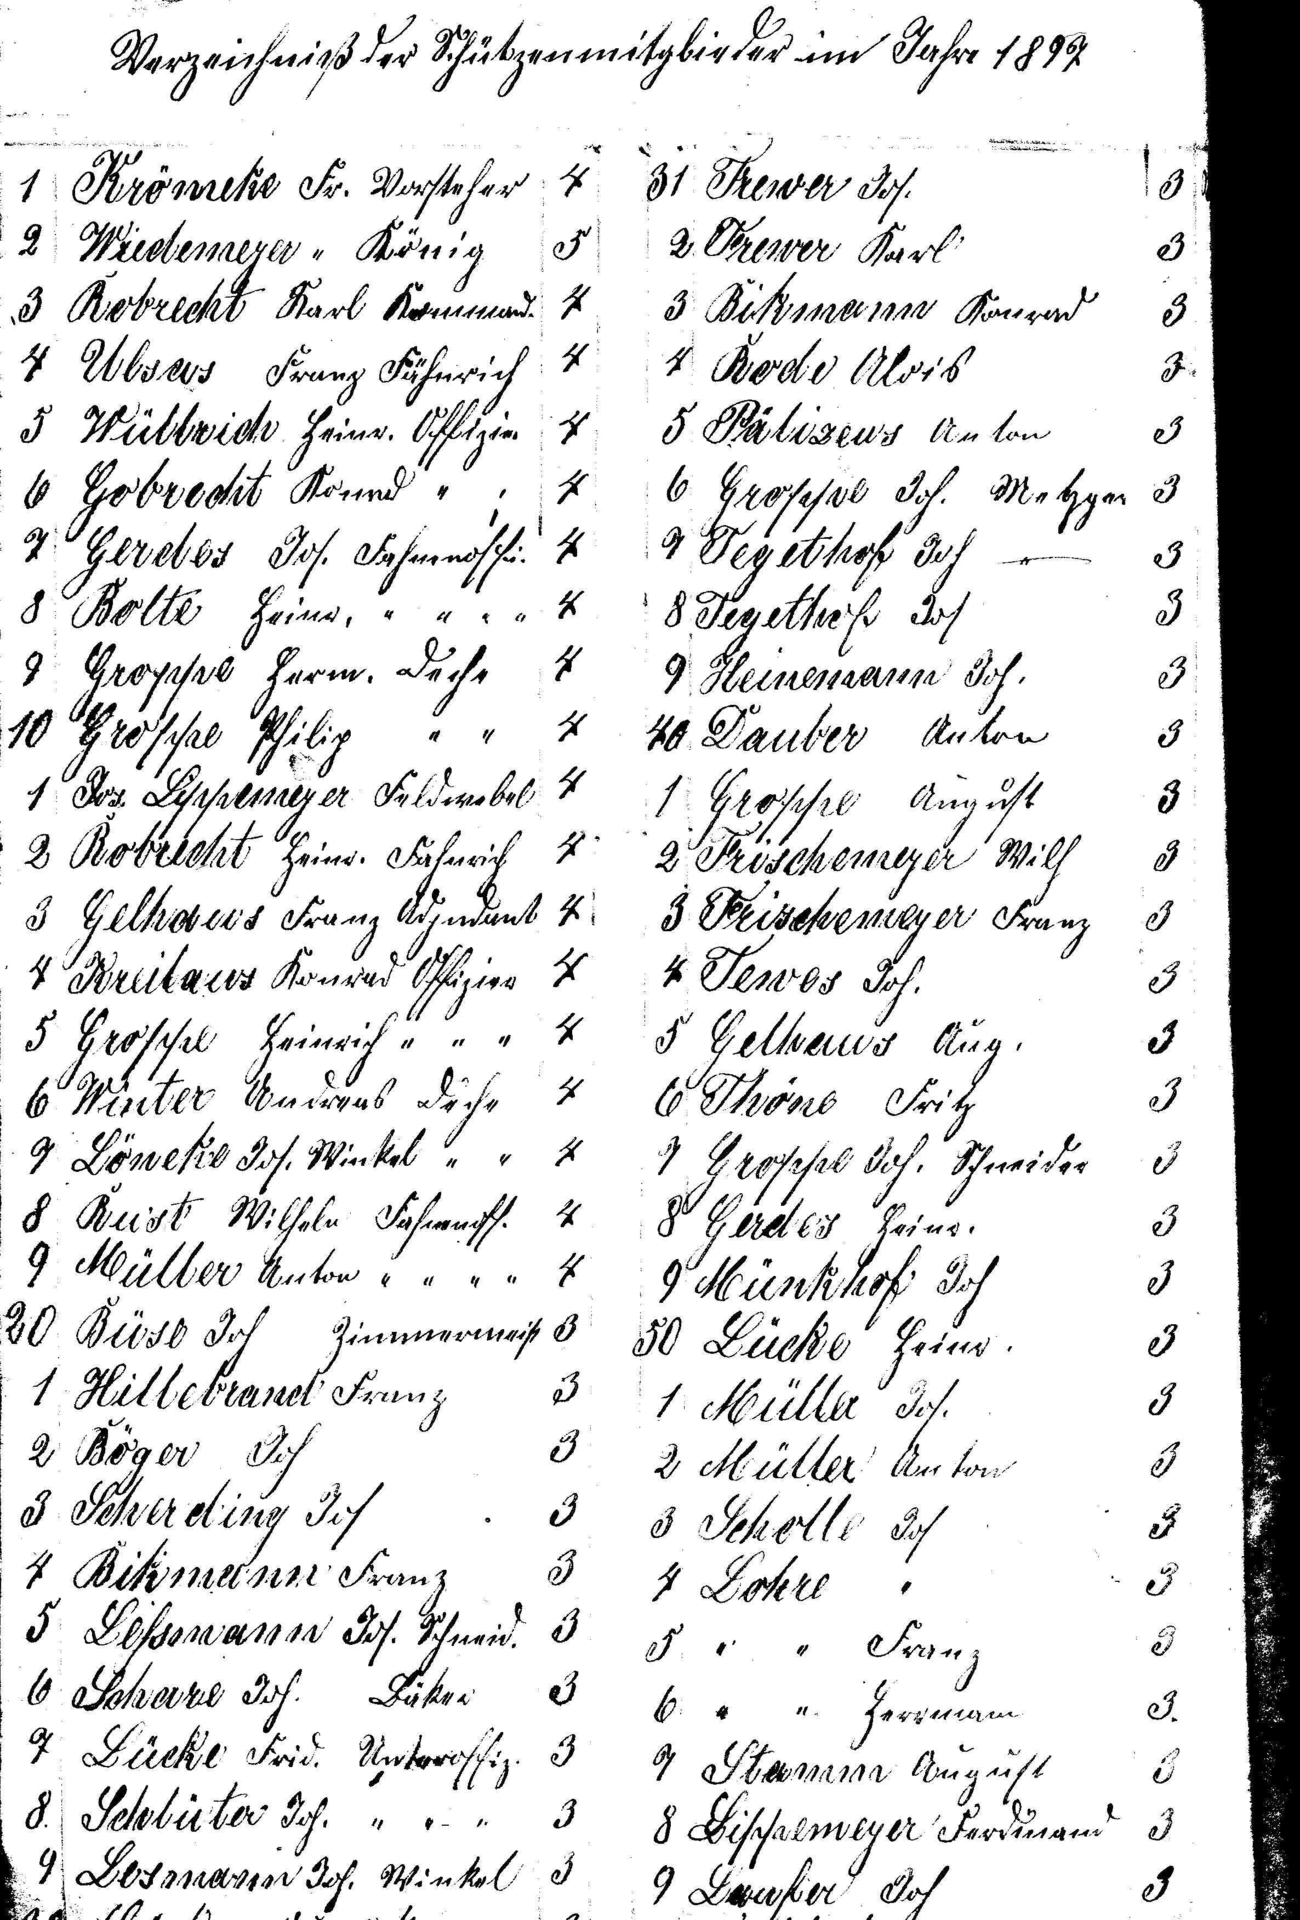 Verzeichniß der Schützenmitglieder im Jahre 1897
1 Krömeke Fr. Vorsteher 4
2 Wiedemeyer " König 5
3 Robrecht Karl Kommand. 4
4 Ubsus Franz Fähnrich 4
5 Wüllrich Heinr. Offizier 4
6 Gobrecht Konrad " " 4
7 Gerdes Jos. Fahnenoffi. 4
8 Bolte Heinr. " " " " 4
9 Groppe Herm. Deche 4
10 Groppe Philip " " 4
1 Jos. Lippemeyer Feldwebel 4
2 Robrecht Heinr. Fähnrich 4
3 Gelhaus Franz Adjudant 4
4 Kreilaus Konrad Offizier 4
5 Groppe Heinrich " " " 4
6 Winter Andreas Deche 4
7 Löneke Jos. Winkel " " 4
8 Rust Wilhelm Fahnenoff. 4
9 Müller Anton " " " " 4
20 Büse Joh Zimmermeist 3
1 Hillebrand Franz 3
2 Böger Joh 3
3 Scherding Jos 3
4 Bikmann Franz 3
5 Leßmann Jos. Schneid. 3
6 Schare Joh. Bäker 3
7 Lücke Frid. Unteroffiz. 3
8. Schlüter Joh. " " " 3
9 Lesmann Joh. Winkel 3
31 Trewer Jos. 3
2 Trewer Karl 3
3 Bikmann Konrad 3
4 Rode Alois 3
5 Pälizeus Anton 3
6 Groppe Joh. Metzger 3
7 Tegethof Joh — 3
8 Tegethof Jos 3
9 Heinemann Joh. 3
40 Dauber Anton 3
1 Groppe August 3
2 Frischemeyer Wilh 3
3 Frischemeyer Franz 3
4 Tewes Joh. 3
5 Gelhaus Aug. 3
6 Thöne Fritz 3
7 Groppe Joh. Schneider 3
8 Gerdes Heinr. 3
9 Münkhof Joh 3
50 Lücke Heinr. 3
1 Müller Jos. 3
2 Müller Anton 3
3 Scholle Jos 3
4 Lohre " 3
5 " " Franz 3
6 " " Herrmann 3.
7 Stamm August 3
8 Lippemeyer Ferdinand 3
9 Joh 3